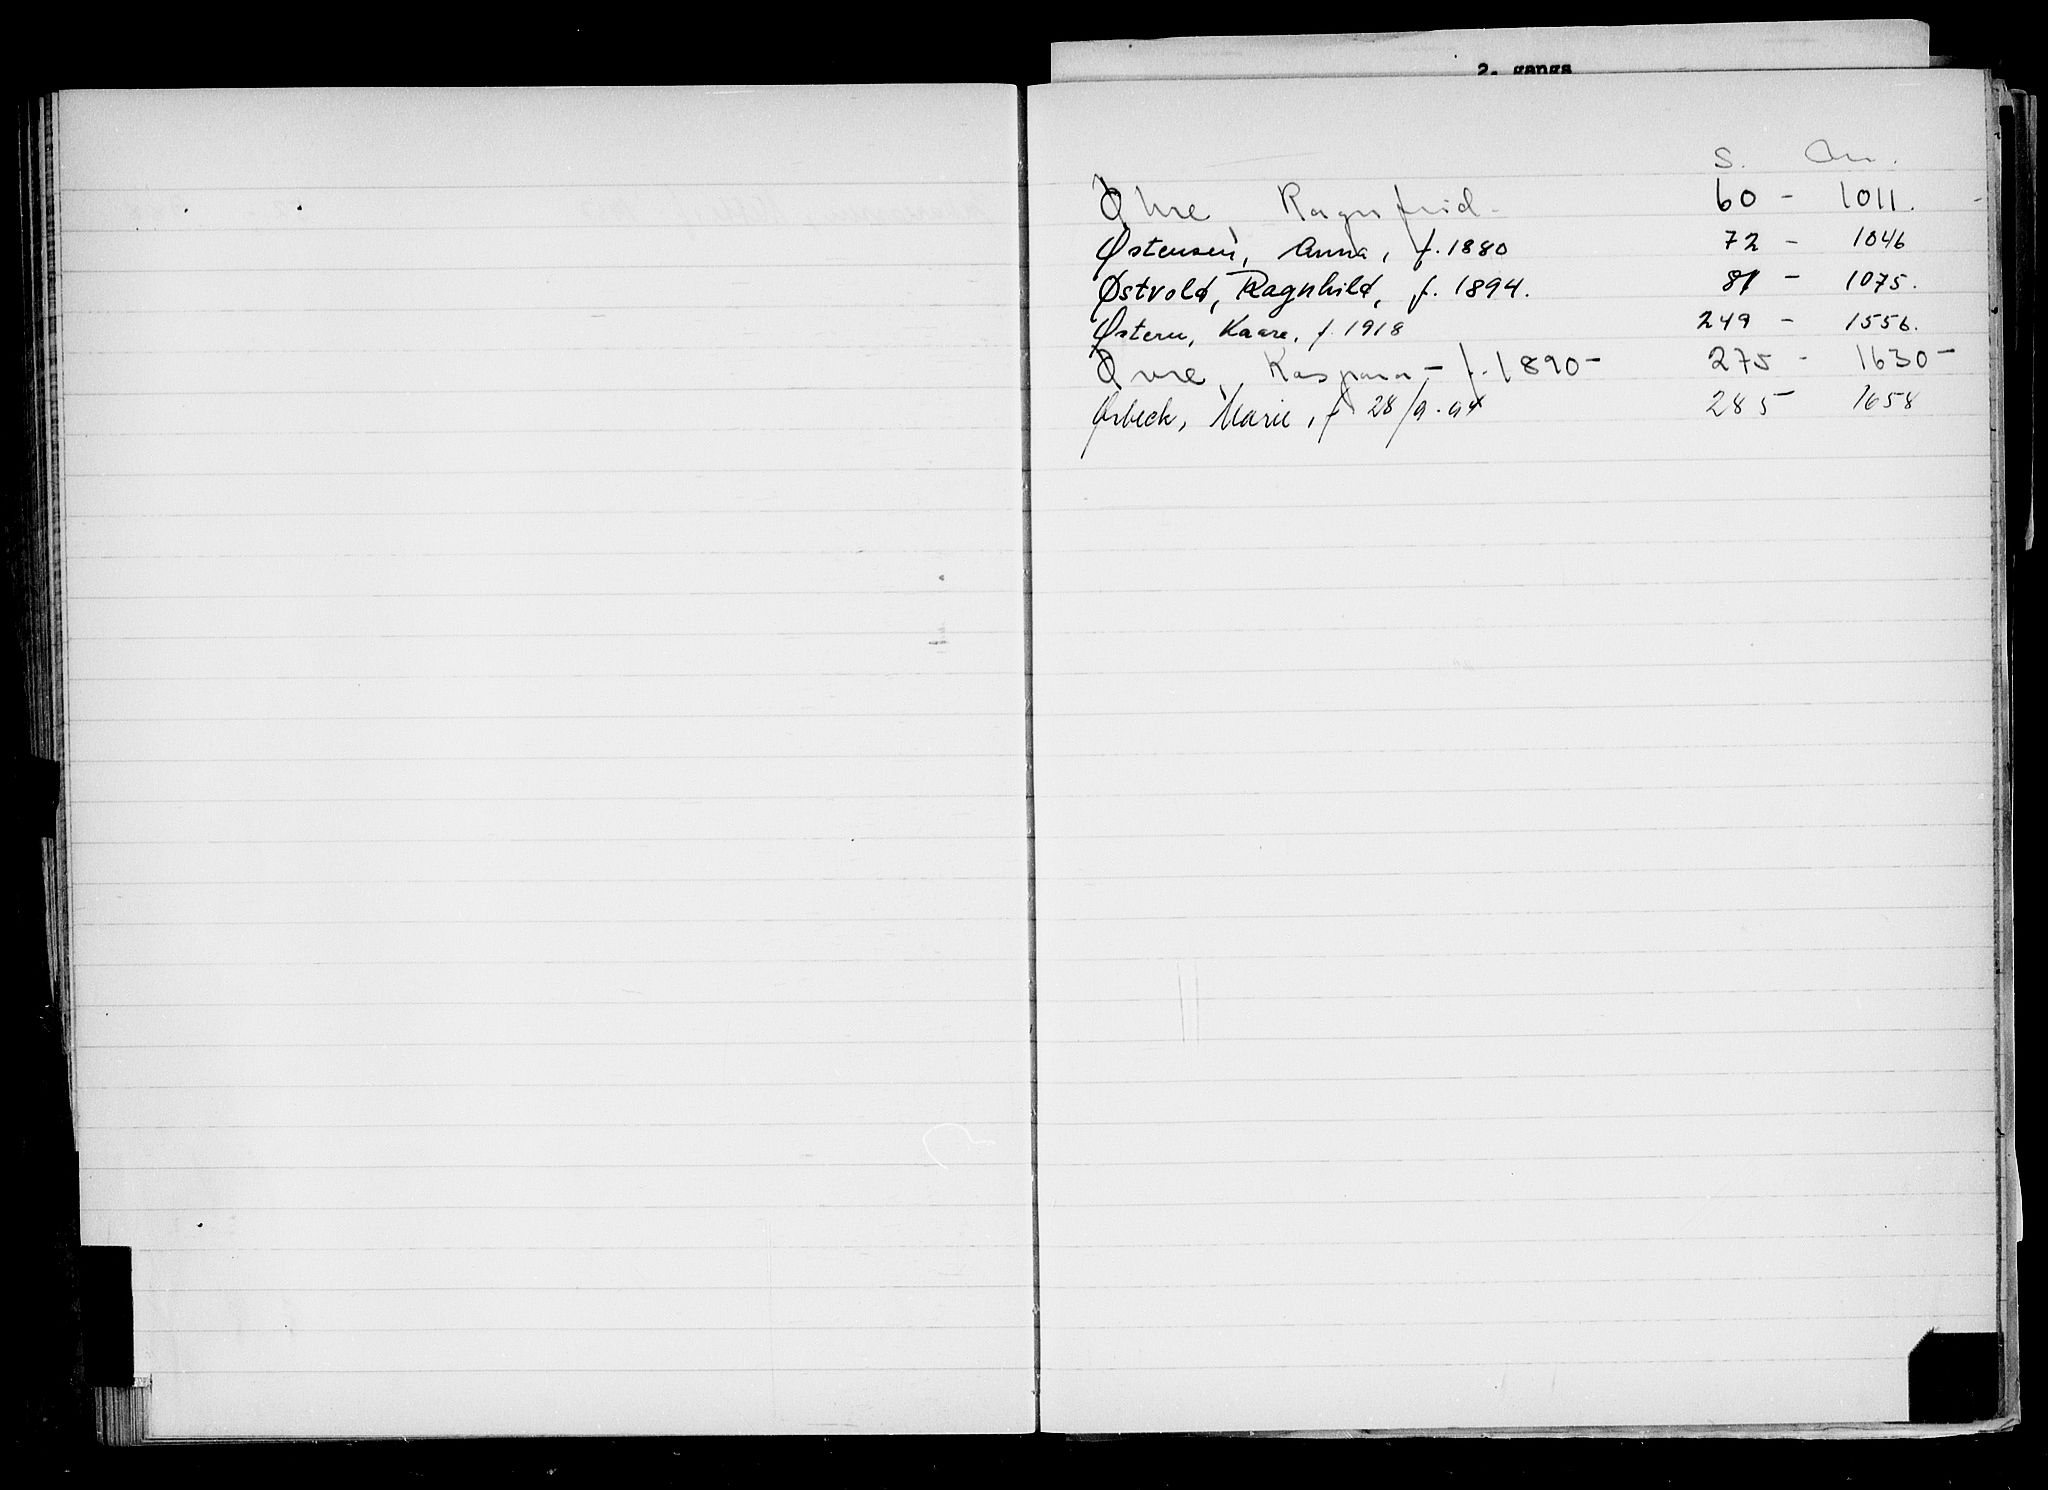 2. ganga
S.
Øhre, Ragnfrid - 60 - 1011.
Østensen, Anna, f. 1880 72 - 1046
Østvold, Ragnhild, f. 1894. 81 - 1075.
Østern, Kaare, f. 1918 249 - 1556.
Øvre, Kaspara - f. 1890 - 275 - 1630 -
Ørbeck, Marie, f 28/9-94 285 1658